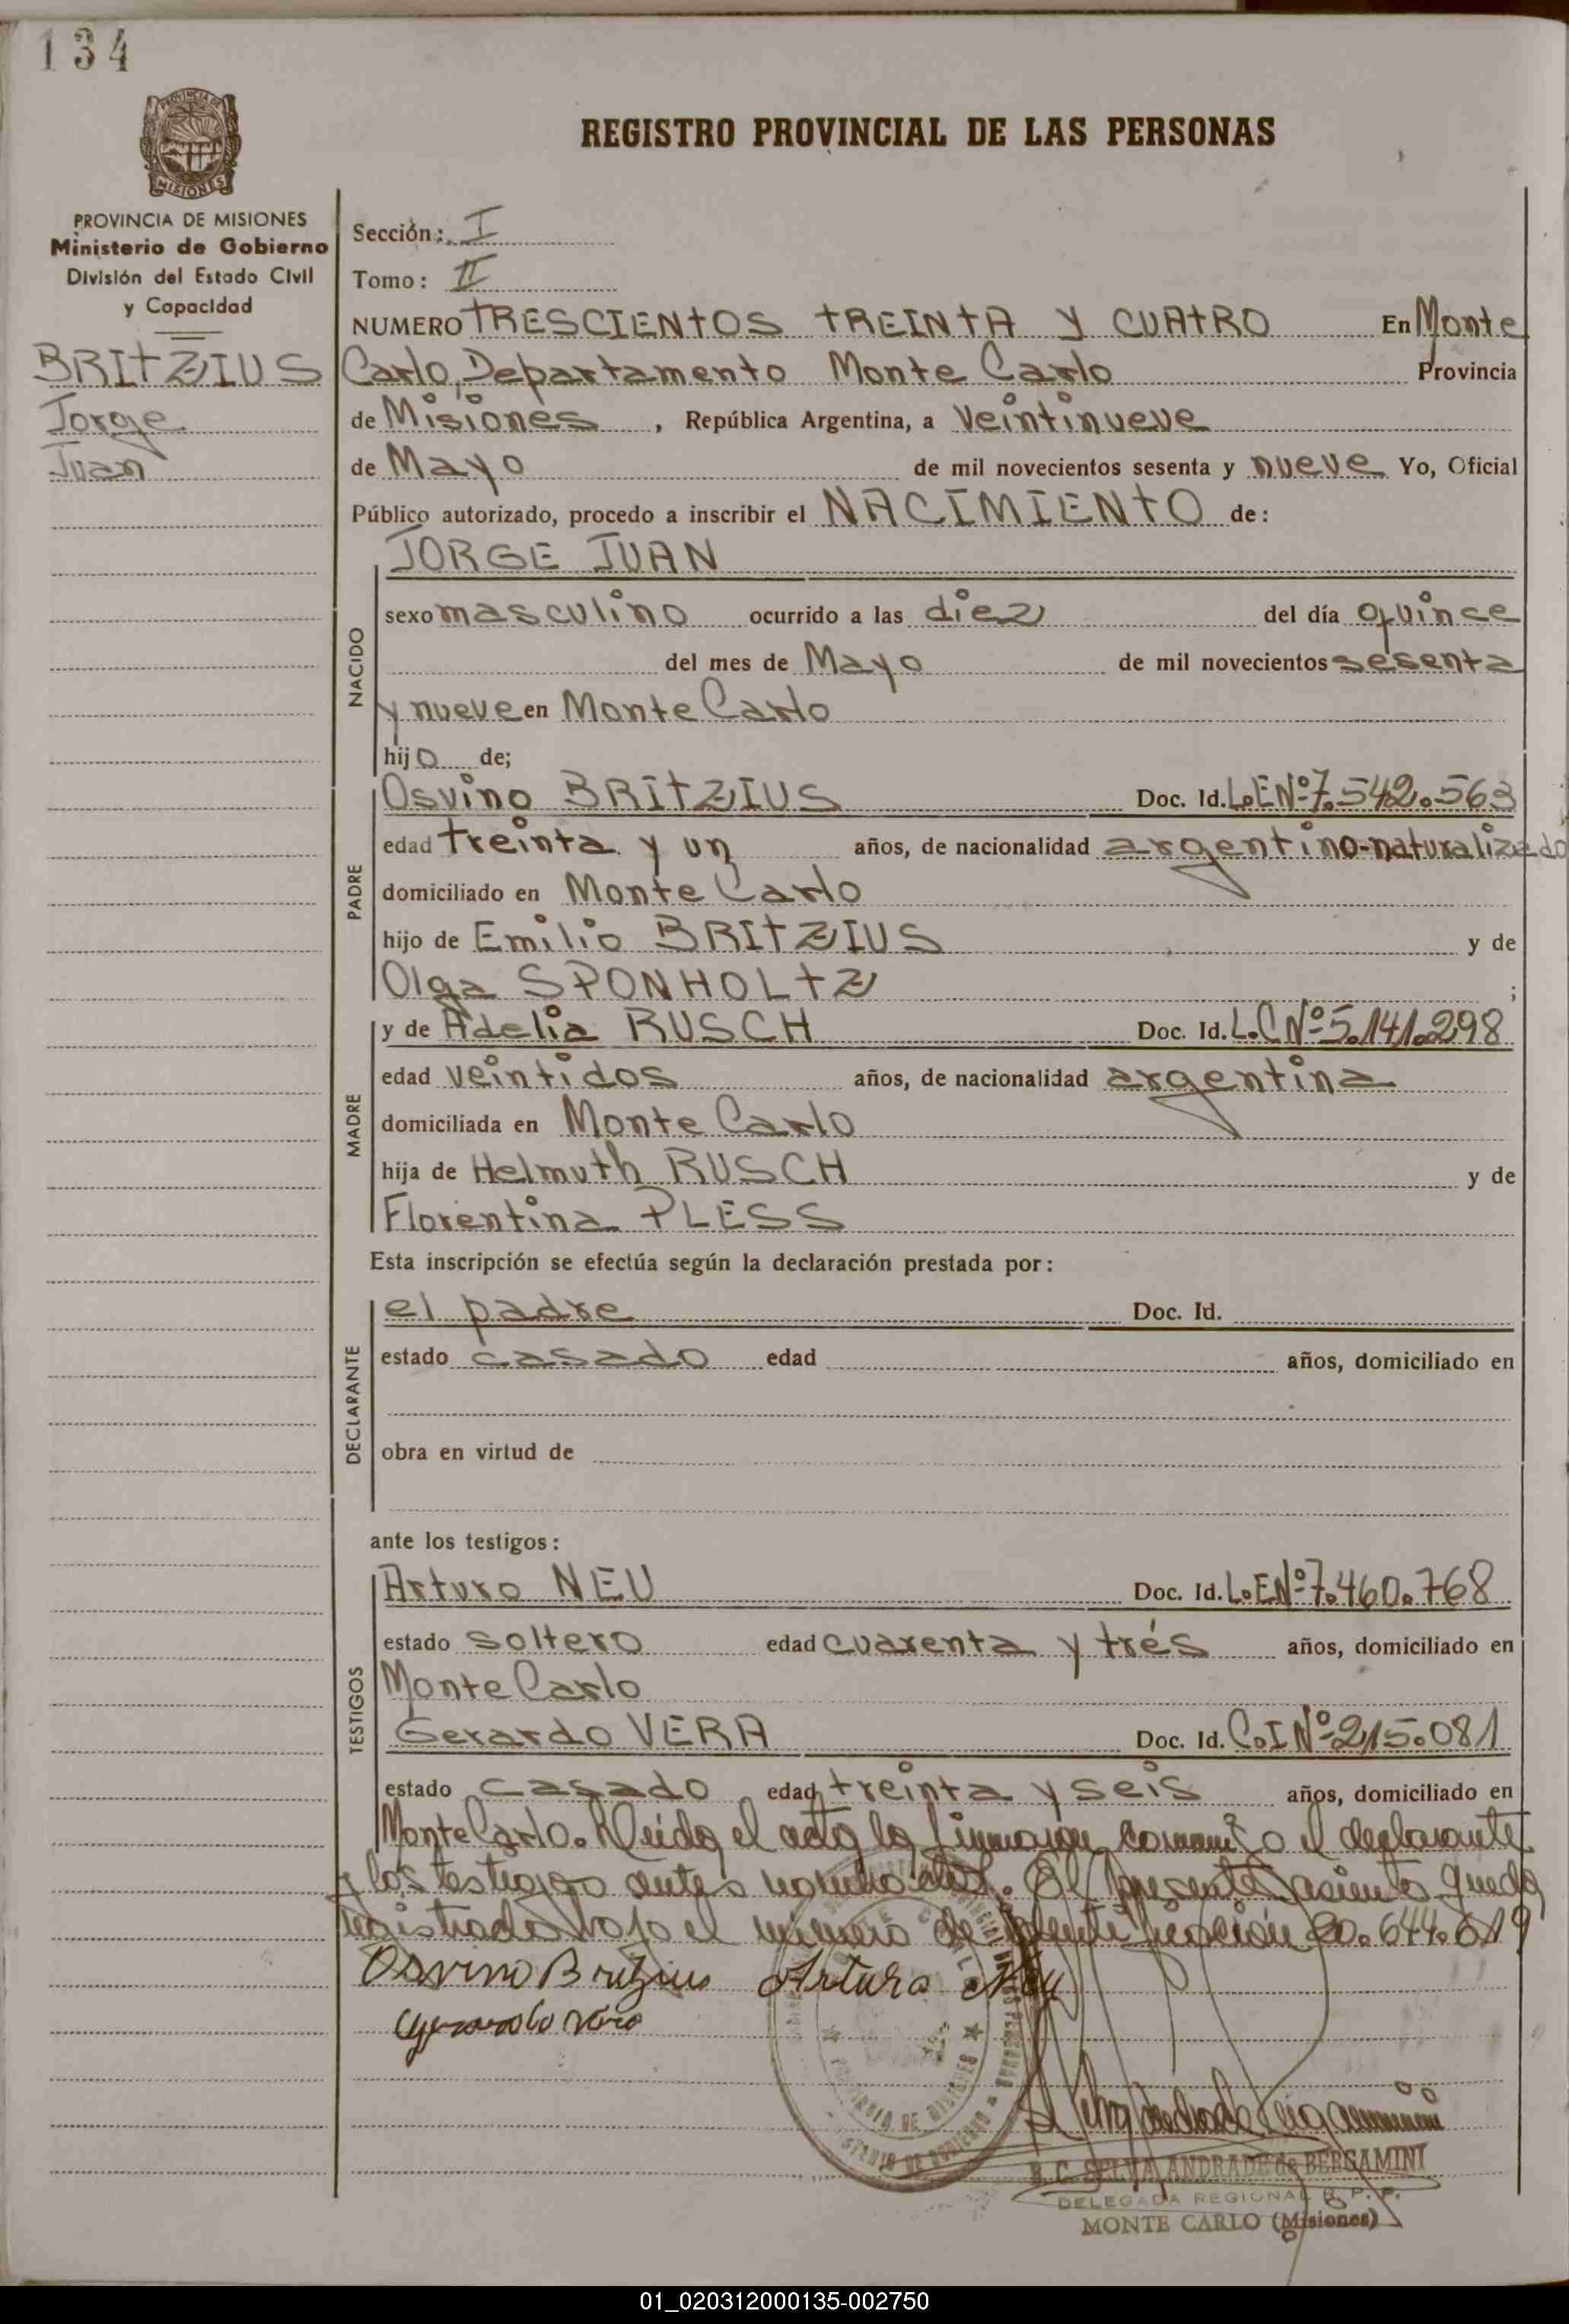 134
PROVINCIA DE MISIONES
REGISTRO PROVINCIAL DE LAS PERSONAS
PROVINCIA DE MISIONES
Ministerio de Gobierno
División del Estado Civil
y Capacidad
BRITZIUS
Jorge
Juan
Sección: I
Tomo: II
NUMERO TRESCIENTOS TREINTA Y CUATRO En Monte
Carlo, Departamento Monte Carlo Provincia
de Misiones, República Argentina, a veintinueve
de Mayo de mil novecientos sesenta y nueve Yo, Oficial
Público autorizado, procedo a inscribir el NACIMIENTO de:
NACIDO
JORGE JUAN
sexo masculino ocurrido a las diez del día quince
del mes de Mayo de mil novecientos sesenta
y nueve en Monte Carlo
hijo de;
PADRE
Osvino BRITZIUS Doc. Id. L.E.Nº 7.542.563
edad treinta y un años, de nacionalidad argentino-naturalizado
domiciliado en Monte Carlo
hijo de Emilio BRITZIUS y de
Olga SPONHOLTZ ;
MADRE
y de Adelia RUSCH Doc. Id. L.C Nº 5.141.298
edad veintidos años, de nacionalidad argentina
domiciliada en Monte Carlo
hija de Helmuth RUSCH y de
Florentina PLESS
Esta inscripción se efectúa según la declaración prestada por:
DECLARANTE
el padre Doc. Id.
estado casado edad años, domiciliado en
obra en virtud de
ante los testigos:
TESTIGOS
Arturo NEU Doc. Id. L.E.Nº 7.460.768
estado soltero edad cuarenta y trés años, domiciliado en
Monte Carlo
Gerardo VERA Doc. Id. C.I Nº 215.081
estado casado edad treinta y seis años, domiciliado en
Monte Carlo. Leida el acta la firman conmigo el declarante
y los testigos antes nombrados. El presente asiento queda
registrado bajo el número de identificación 20.644.619
Osvino Britzius Arturo Neu
Gerardo Vera
PROVINCIA DE MISIONES
B. C. SELVA ANDRADE de BERGAMINI
DELEGADA REGIONAL R. P. P.
MONTE CARLO (Misiones)
01_020312000135-002750